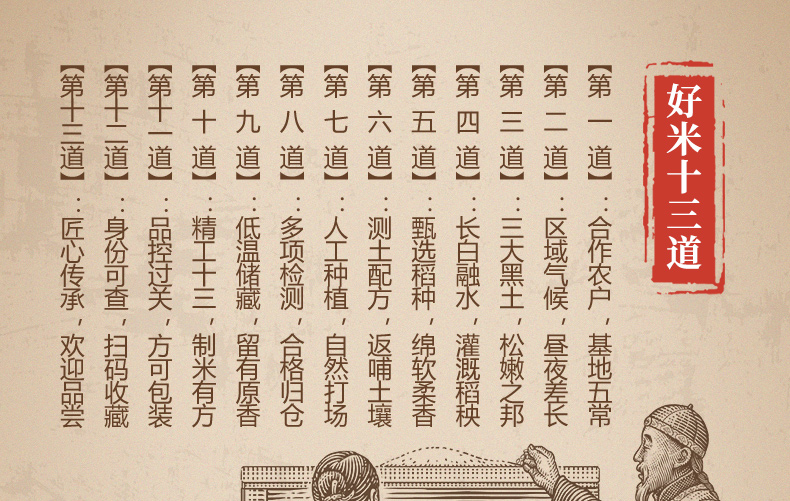 好米十三道
【第一道】：合作农户，基地五常
【第二道】：区域气候，昼夜差长
【第三道】：三大黑土，松嫩之邦
【第四道】：长白融水，灌溉稻秧
【第五道】：甄选稻种，绵软柔香
【第六道】：测土配方，返哺土壤
【第七道】：人工种植，自然打场
【第八道】：多项检测，合格归仓
【第九道】：低温储藏，留有原香
【第十道】：精工十三，制米有方
【第十一道】：品控过关，方可包装
【第十二道】：身份可查，扫码收藏
【第十三道】：匠心传承，欢迎品尝